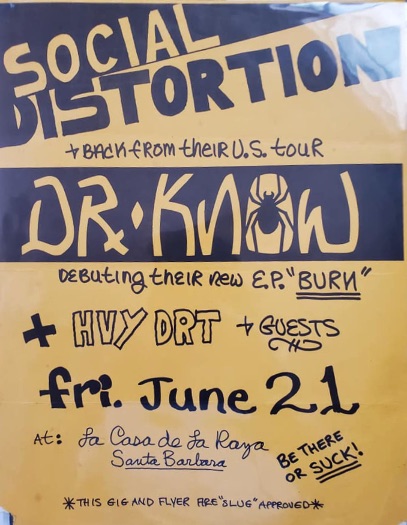 SOCIAL
DISTORTION
+ BACK FROM THEIR U.S. TOUR
DR•KNOW
DEBUTING THEIR NEW E.P. "BURN"
+ HVY DRT + GUESTS
fri. June 21
AT: La Casa de La Raza
Santa Barbara
BE THERE
OR SUCK!
*THIS GIG AND FLYER ARE "SLUG" APPROVED*